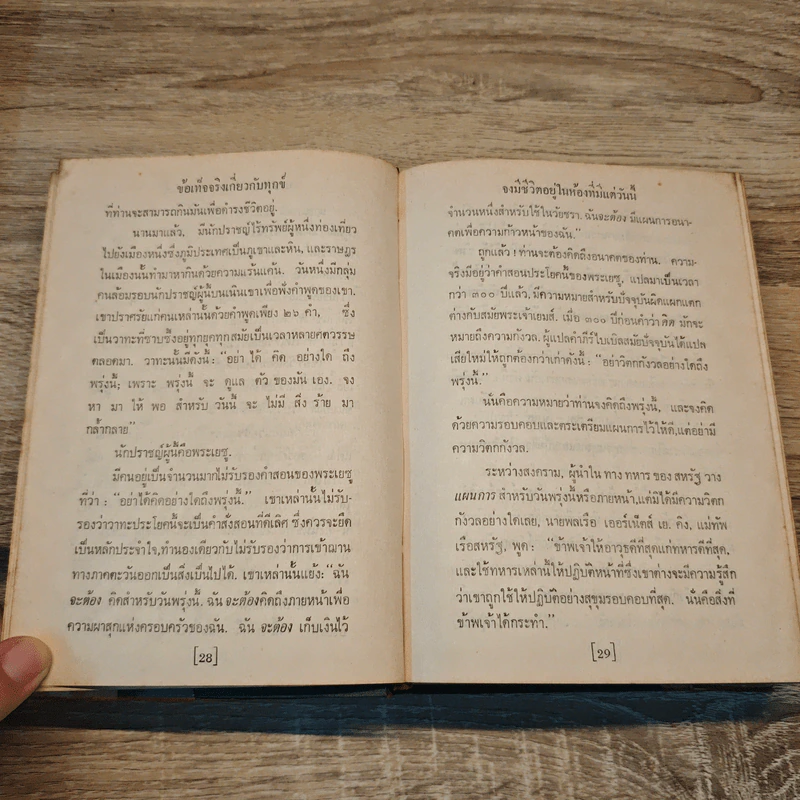 ข้อเท็จจริงเกี่ยวกับทุกข์
ที่ท่านจะสามารถกินมันเพื่อดำรงชีวิตอยู่.
นานมาแล้ว, มีนักปราชญ์ไร้ทรัพย์ผู้หนึ่งท่องเที่ยว
ไปยังเมืองหนึ่งซึ่งภูมิประเทศเป็นภูเขาและหิน, และราษฎร
ในเมืองนั้นทำมาหากินด้วยความแร้นแค้น. วันหนึ่งมีกลุ่ม
คนล้อมรอบนักปราชญ์ผู้นี้บนเนินเขาเพื่อฟังคำพูดของเขา.
เขาปราศรัยแก่คนเหล่านั้นด้วยคำพูดเพียง ๒๖ คำ, ซึ่ง
เป็นวาทะที่ซาบซึ้งอยู่ทุกยุคทุกสมัยเป็นเวลาหลายศตวรรษ
ตลอดมา. วาทะนั้นมีดังนี้: "อย่า ได้ คิด อย่างใด ถึง
พรุ่งนี้; เพราะ พรุ่งนี้ จะ ดูแล ตัว ของมัน เอง. จง
หา มา ให้ พอ สำหรับ วันนี้ จะ ไม่มี สิ่ง ร้าย มา
กล้ำกลาย"
นักปราชญ์ผู้นี้คือพระเยซู.
มีคนอยู่เป็นจำนวนมากไม่รับรองคำสอนของพระเยซู
ที่ว่า: "อย่าได้คิดอย่างใดถึงพรุ่งนี้." เขาเหล่านั้นไม่รับ-
รองว่าวาทะประโยคนี้จะเป็นคำสั่งสอนที่ดีเลิศ ซึ่งควรจะยึด
เป็นหลักประจำใจ, ทำนองเดียวกับไม่รับรองว่าการเข้าฌาน
ทางภาคตะวันออกเป็นสิ่งเป็นไปได้. เขาเหล่านั้นแย้ง: "ฉัน
จะต้อง คิดสำหรับวันพรุ่งนี้. ฉัน จะต้องคิดถึงภายหน้าเพื่อ
ความผาสุกแห่งครอบครัวของฉัน. ฉัน จะต้อง เก็บเงินไว้
[28]
จงมีชีวิตอยู่ในห้องที่มีแต่วันนี้
จำนวนหนึ่งสำหรับใช้ในวัยชรา. ฉันจะต้อง มีแผนการอนา-
คตเพื่อความก้าวหน้าของฉัน."
ถูกแล้ว! ท่านจะต้องคิดถึงอนาคตของท่าน. ความ-
จริงมีอยู่ว่าคำสอนประโยคนี้ของพระเยซู, แปลมาเป็นเวลา
กว่า ๓๐๐ ปีแล้ว, มีความหมายสำหรับปัจจุบันผิดแผกแตก
ต่างกับสมัยพระเจ้าเยมส์. เมื่อ ๓๐๐ ปีก่อนคำว่า คิด มักจะ
หมายถึงความกังวล. ผู้แปลคำภีร์ไบเบิลสมัยปัจจุบันได้แปล
เสียใหม่ให้ถูกต้องกว่าเก่าดังนี้: "อย่าวิตกกังวลอย่างใดถึง
พรุ่งนี้."
นั่นคือความหมายว่าท่านจงคิดถึงพรุ่งนี้, และจงคิด
ด้วยความรอบคอบและตระเตรียมแผนการไว้ให้ดี, แต่อย่ามี
ความวิตกกังวล.
ระหว่างสงคราม, ผู้นำใน ทาง ทหาร ของ สหรัฐ วาง
แผนการ สำหรับวันพรุ่งนี้หรือภายหน้า, แต่มิได้มีความวิตก
กังวลอย่างใดเลย, นายพลเรือ เออร์เน็ตส์ เย. คิง, แม่ทัพ
เรือสหรัฐ, พูด: "ข้าพเจ้าให้อาวุธดีที่สุดแก่ทหารดีที่สุด,
และใช้ทหารเหล่านี้ให้ปฏิบัติหน้าที่ซึ่งเขาต่างจะมีความรู้สึก
ว่าเขาถูกใช้ให้ปฏิบัติอย่างสุขุมรอบคอบที่สุด. นั่นคือสิ่งที่
ข้าพเจ้าได้กระทำ."
[29]